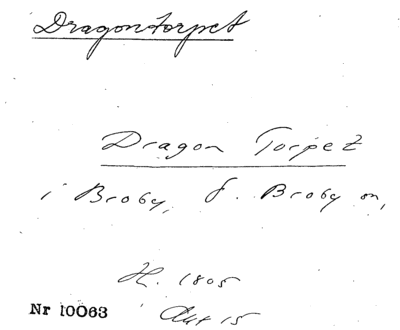 Dragontorpet
Dragon Torpet
i Broby, Ö. Broby sn,
H. 1805
Akt 15
Nr 10063